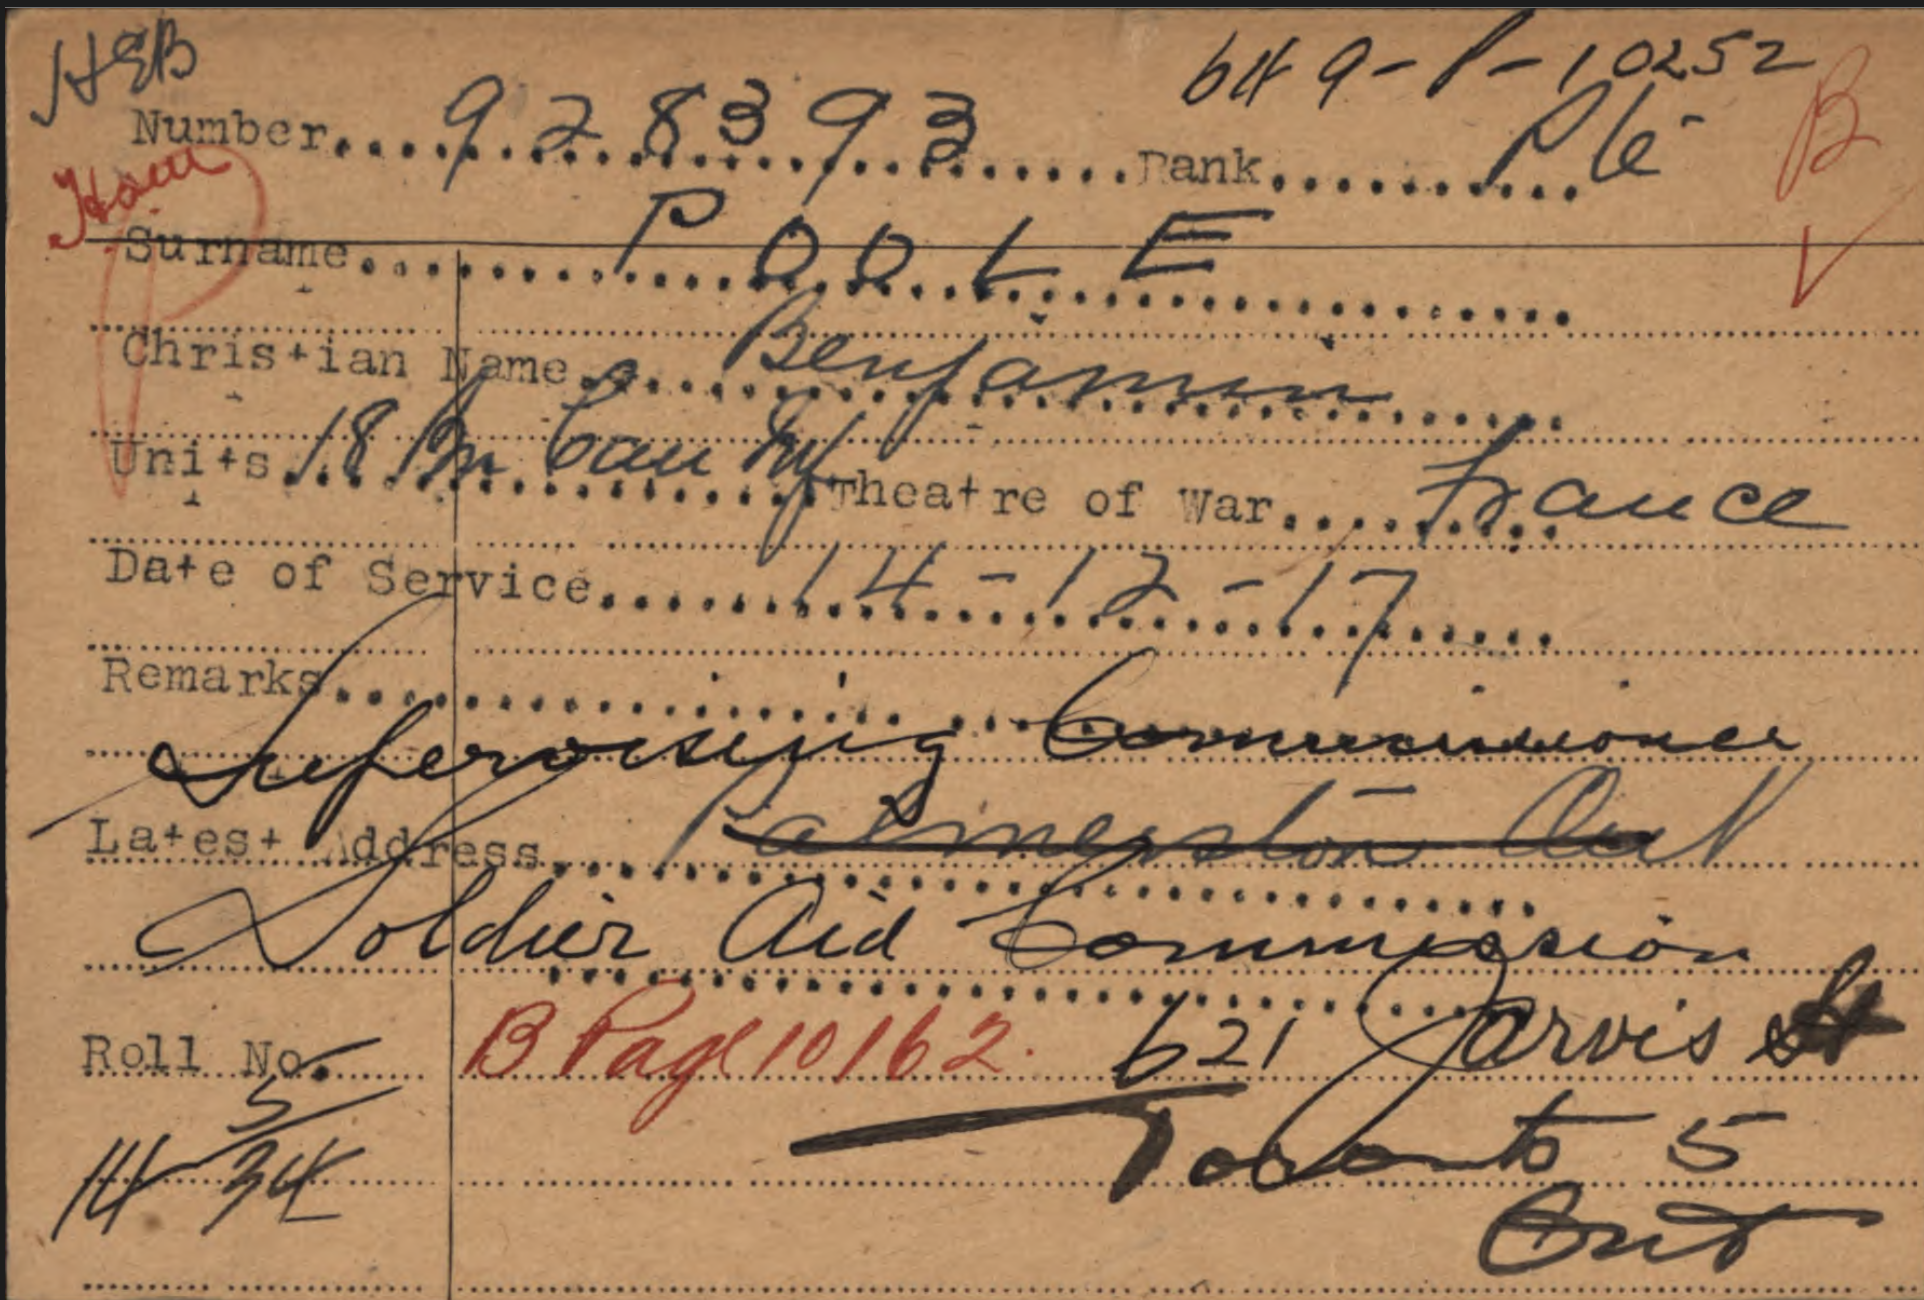 HEB
649-P-10252
Number 928393 Rank Pte
B
Surname POOLE
Christian Name Benjamin
Units 18 Bn Can Inf Theatre of War France
Date of Service 14-12-17
Remarks
Supervising Commissioner
Latest Address Palmerston Ont
Soldier Aid Commission
Roll No. B Page 10162. 621 Jarvis St
14 5/34 Toronto 5
Ont